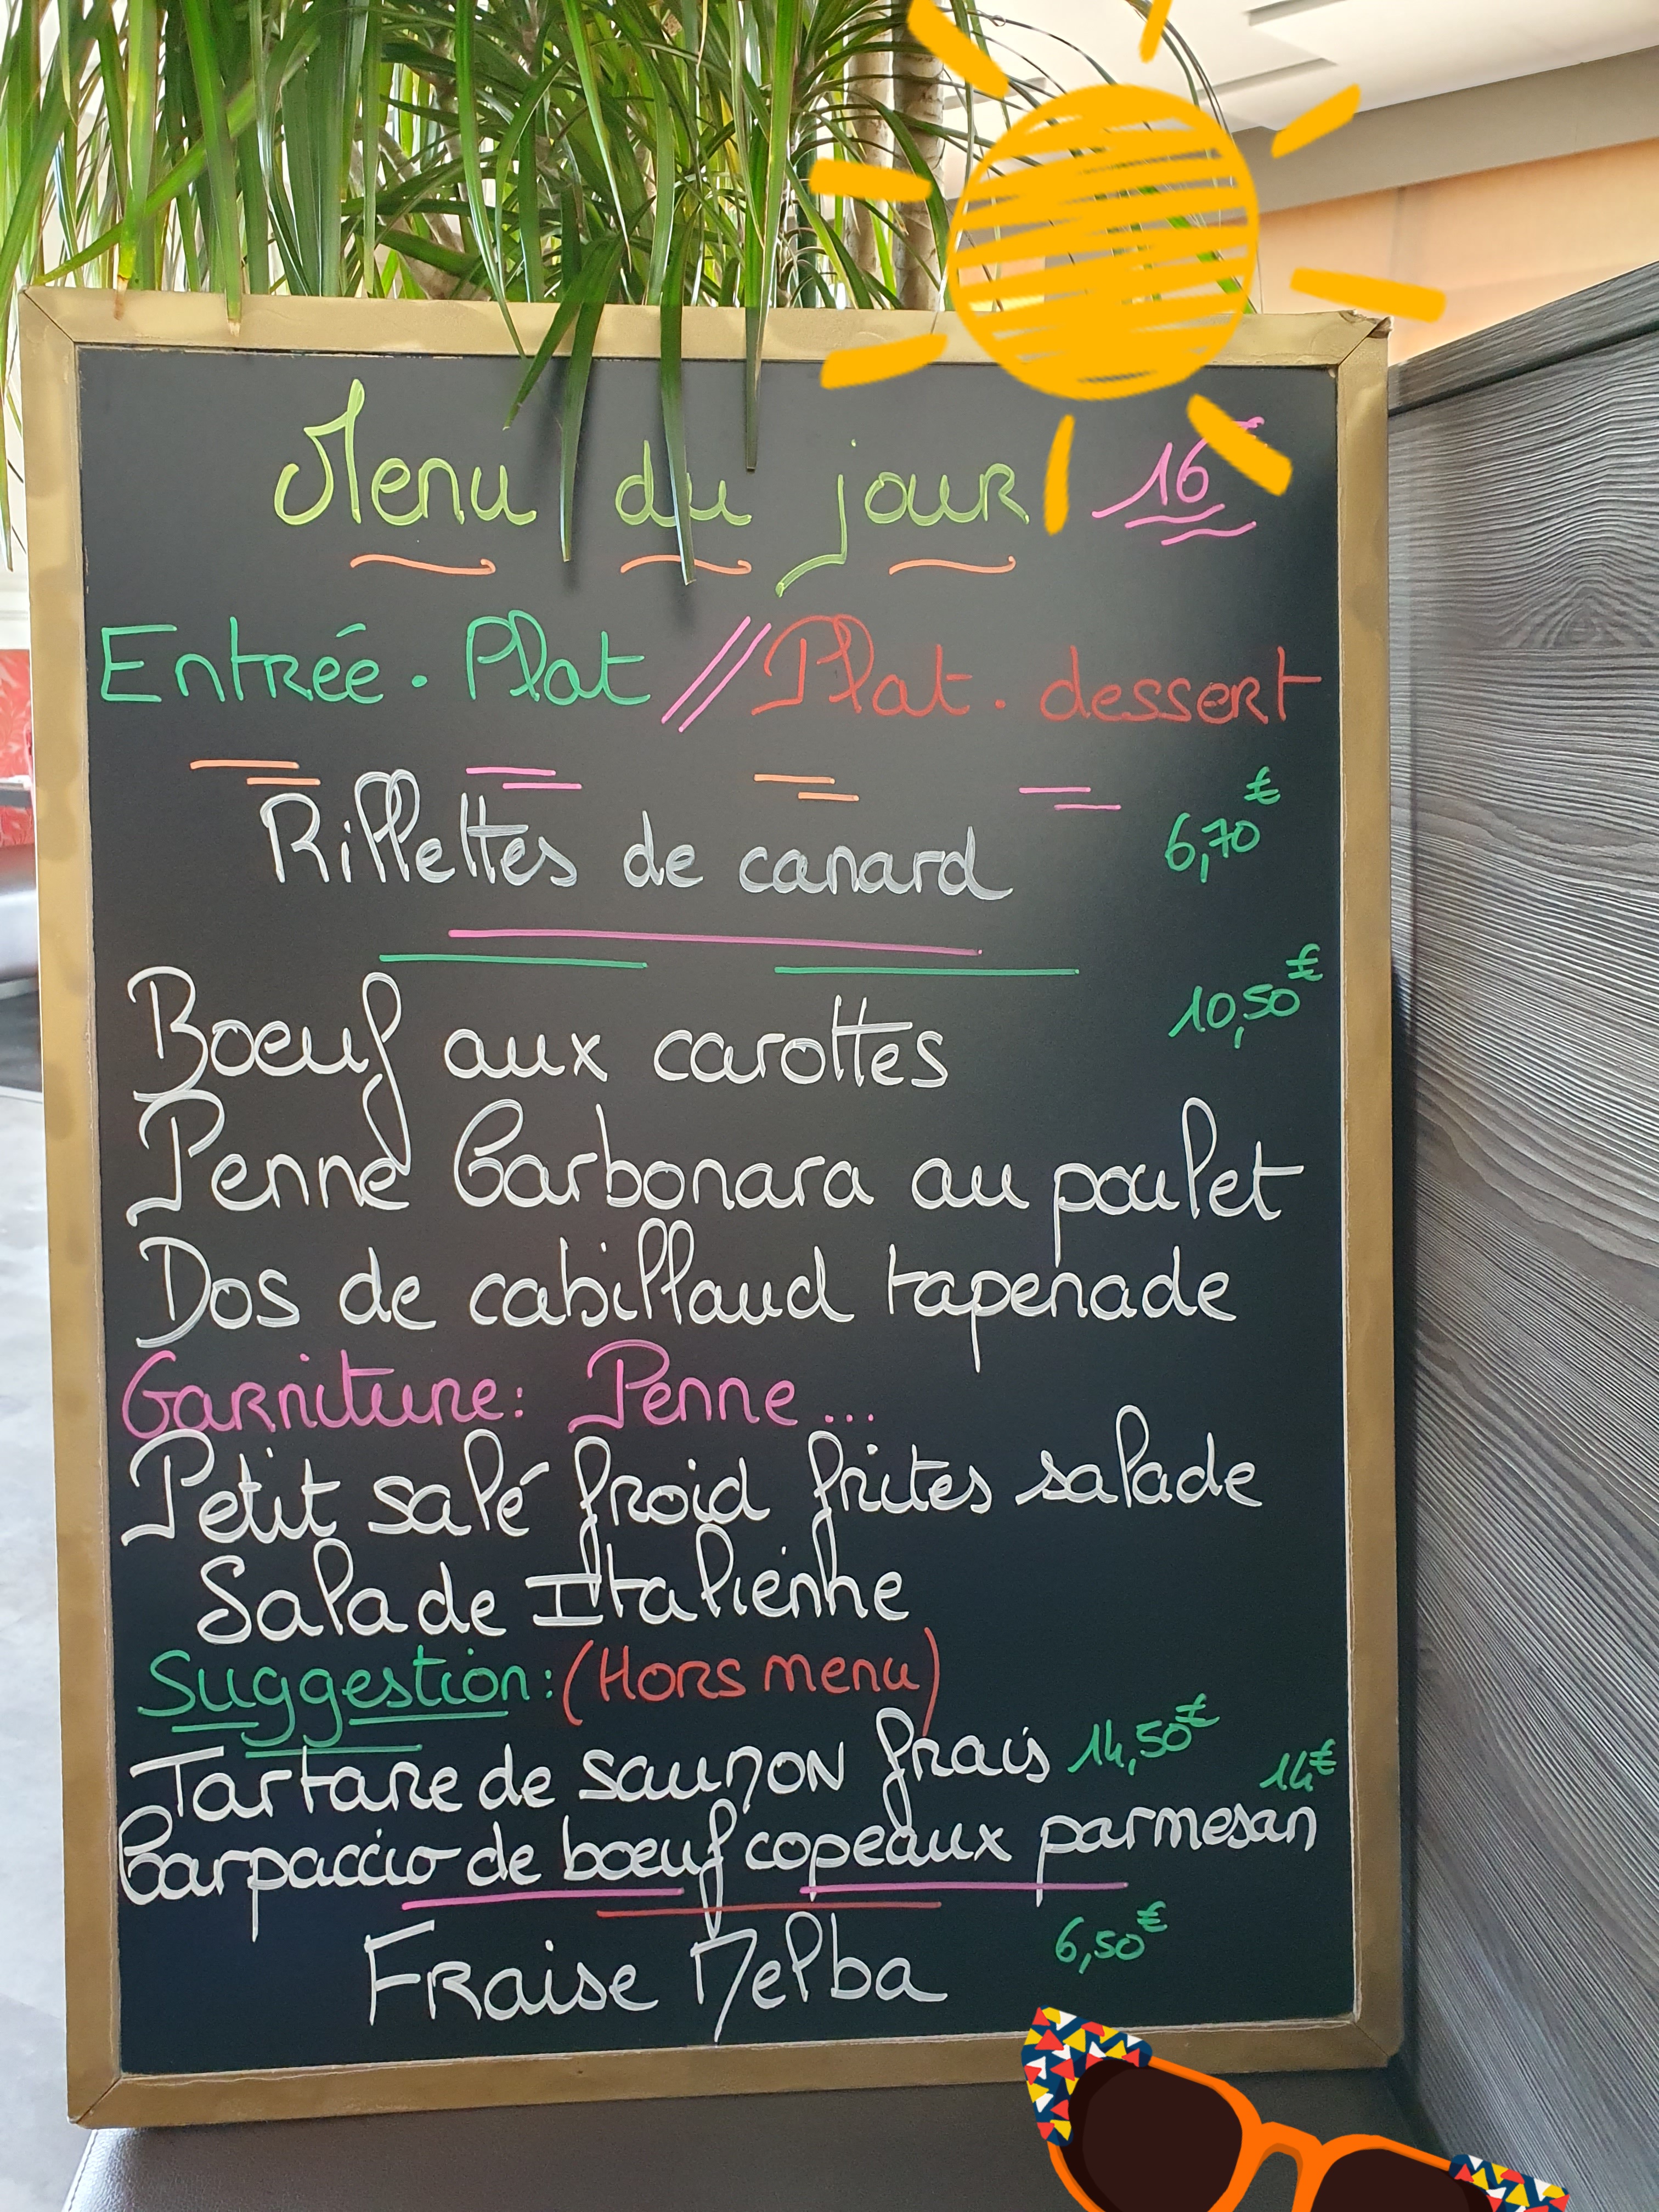 Menu du jour 16€
Entrée . Plat // Plat . dessert
Rillettes de canard 6,70€
Boeuf aux carottes 10,50€
Penne Carbonara au poulet
Dos de cabillaud tapenade
Garniture: Penne...
Petit salé froid frites salade
Salade Italienne
Suggestion: (Hors menu)
Tartare de saumon frais 14,50€
Carpaccio de bœuf copeaux parmesan 14€
Fraise Melba 6,50€